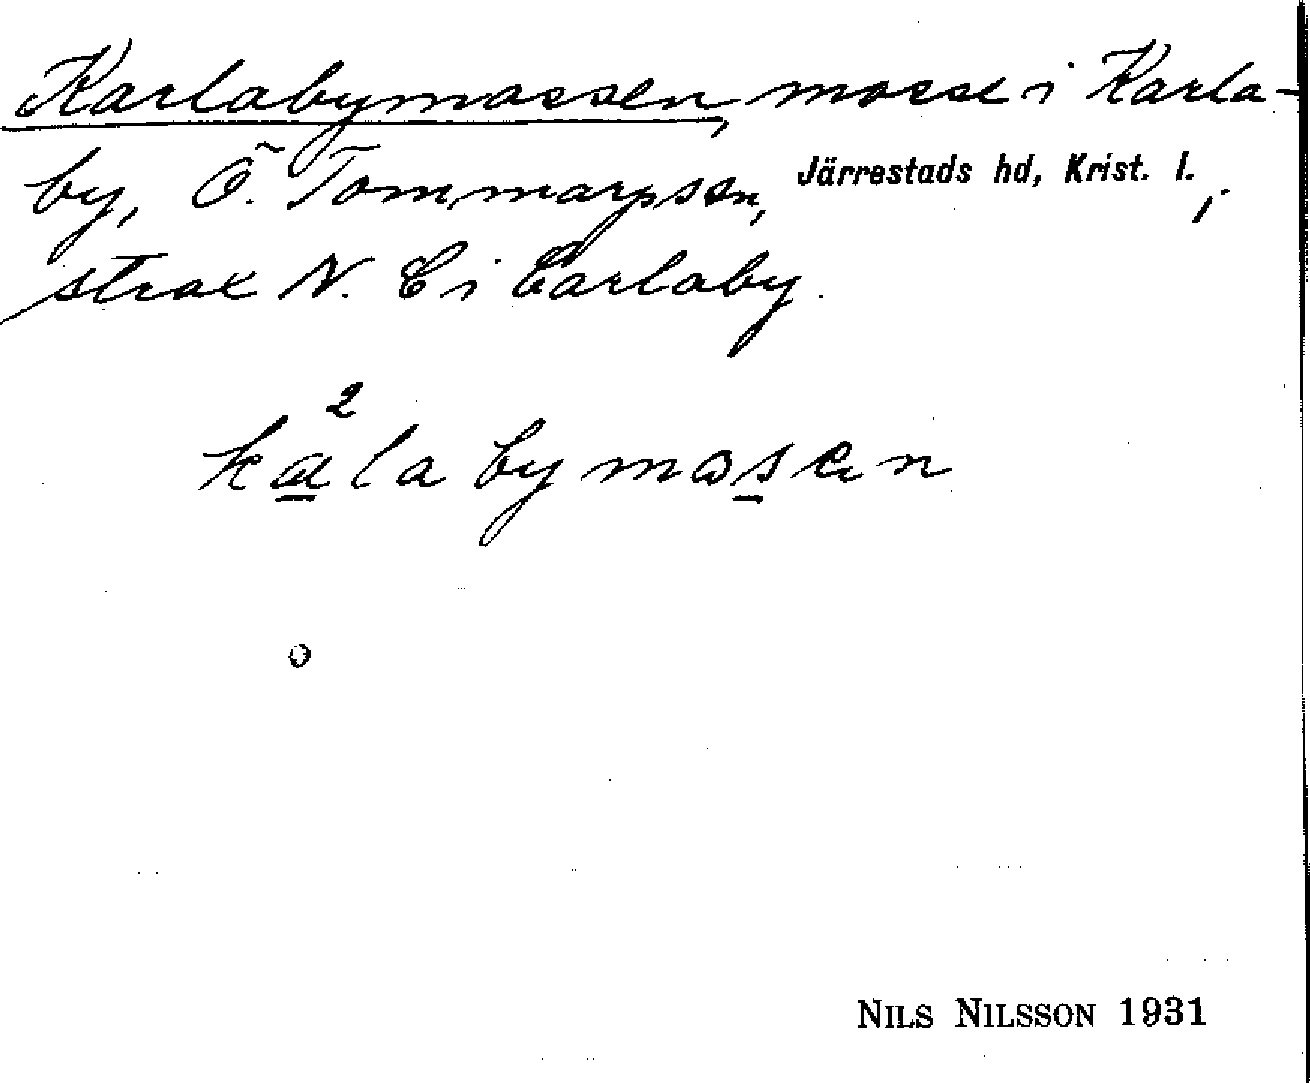 Karlabymossen, mosse i Karla-
by, Ö. Tommarpssn, Järrestads hd, Krist. l.,
strax N. C i Carlaby.
2
kælabymosen
NILS NILSSON 1931